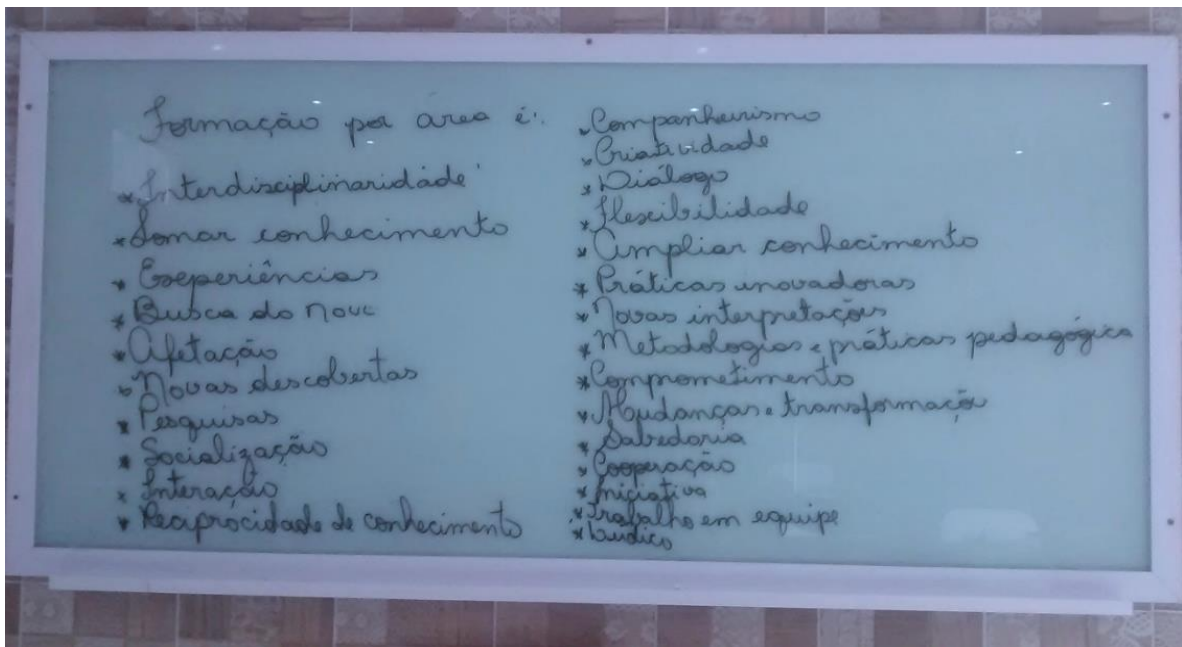 Formação por área é:
* Interdisciplinaridade
* Somar conhecimento
* Experiências
* Busca do novo
* Afetação
* Novas descobertas
* Pesquisas
* Socialização
* Interação
* Reciprocidade de conhecimento
* Companheirismo
* Criatividade
* Diálogo
* Flexibilidade
* Ampliar conhecimento
* Práticas inovadoras
* Novas interpretações
* Metodologias e práticas pedagógica
* Comprometimento
* Mudanças e transformação
* Sabedoria
* Cooperação
* Iniciativa
* Trabalho em equipe
* Lúdico